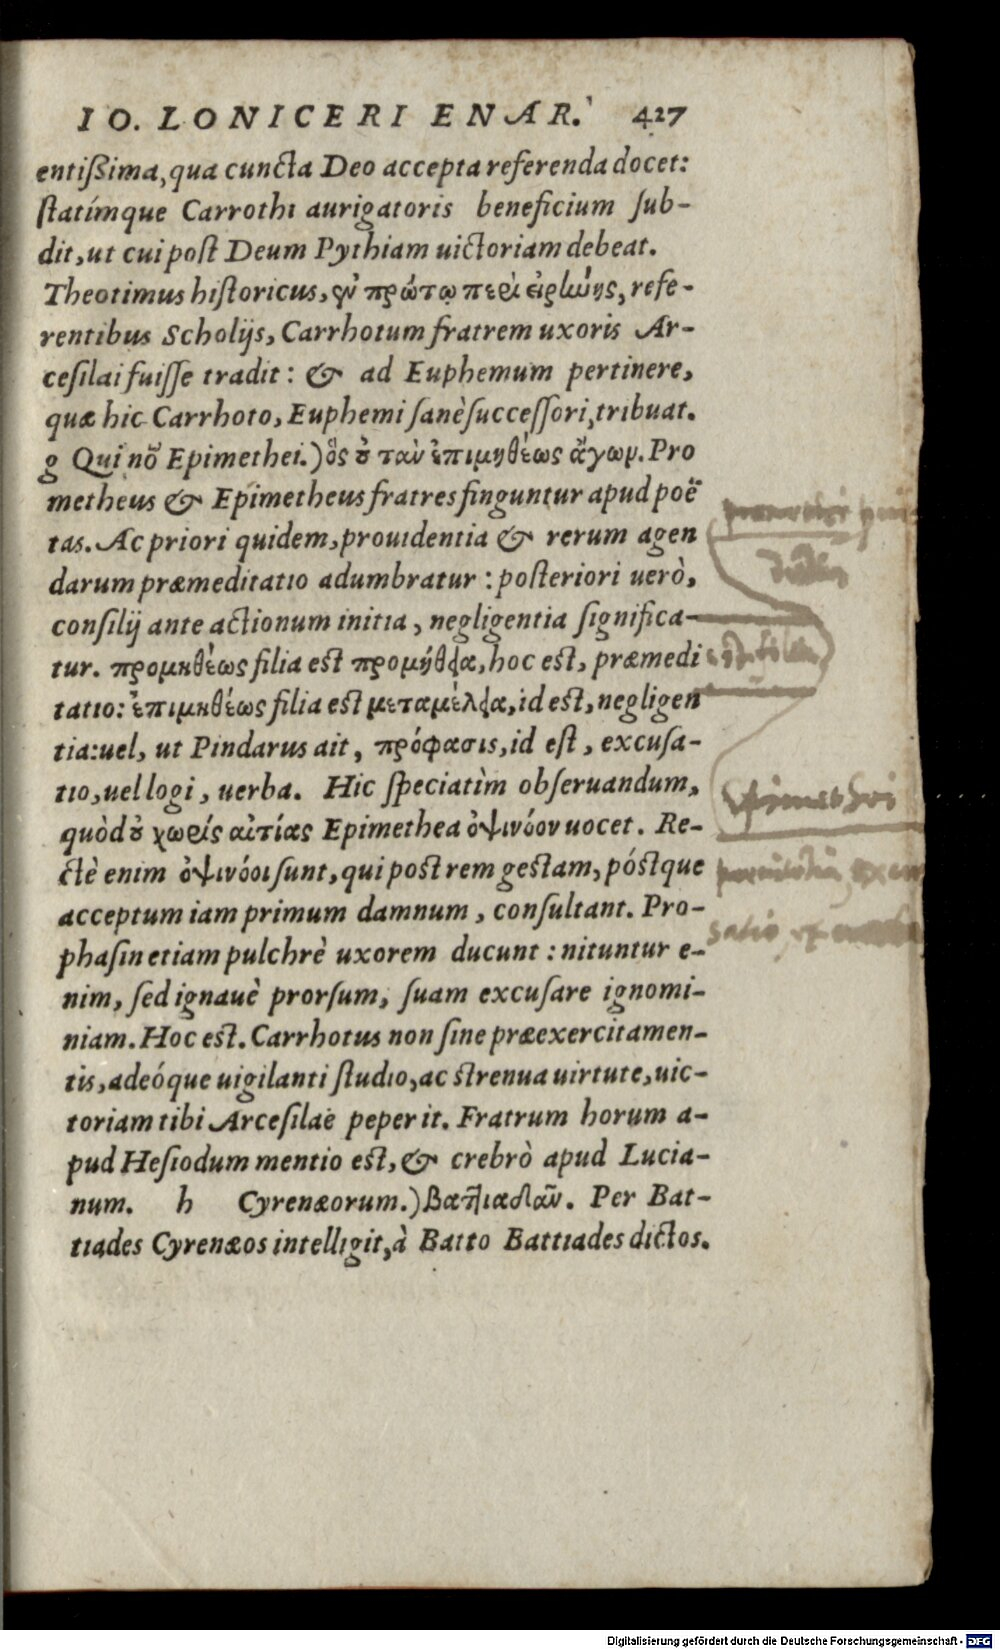 IO. LONICERI ENAR. 427
entißima, qua cuncta Deo accepta referenda docet:
ſtatímque Carrothi aurigatoris beneficium ſub-
dit, ut cui poſt Deum Pythiam uictoriam debeat.
Theotimus hiſtoricus, ἐν πρώτῳ περὶ εἰρήνης, refe-
rentibus Scholijs, Carrhotum fratrem uxoris Ar-
ceſilai fuiſſe tradit: & ad Euphemum pertinere,
quæ hic Carrhoto, Euphemi ſanè ſucceſſori, tribuat.
g Qui nõ Epimethei.) ὃς ȣ̓ τὰν ἐπιμηθέως ἄγων. Pro
metheus & Epimetheus fratres finguntur apud poë
tas. Ac priori quidem, prouidentia & rerum agen
darum præmeditatio adumbratur: poſteriori uerò,
conſilij ante actionum initia, negligentia ſignifica-
tur. προμηθέως filia est προμήθεια, hoc eſt, præmedi
tatio: ἐπιμηθέως filia est μεταμέλεια, id eſt, negligen
tia: uel, ut Pindarus ait, πρόφασις, id eſt, excuſa-
tio, uel logi, uerba. Hic ſpeciatìm obſeruandum,
quòd ȣ̓ χωρίς αἰτίας Epimethea ὀψινόον uocet. Re-
ctè enim ὀψινόοι ſunt, qui post rem gestam, póstque
acceptum iam primum damnum, conſultant. Pro-
phaſin etiam pulchrè uxorem ducunt: nituntur e-
nim, ſed ignauè prorſum, ſuam excuſare ignomi-
niam. Hoc eſt. Carrhotus non ſine præexercitamen-
tis, adeóque uigilanti ſtudio, ac strenua uirtute, uic-
toriam tibi Arceſilaë peperit. Fratrum horum a-
pud Heſiodum mentio eſt, & crebrò apud Lucia-
num. h Cyrenæorum.) βαττιαδᾶν. Per Bat-
tiades Cyrenæos intelligit, à Batto Battiades dictos.
Epimethei
Digitalisierung gefördert durch die Deutsche Forschungsgemeinschaft - DFG